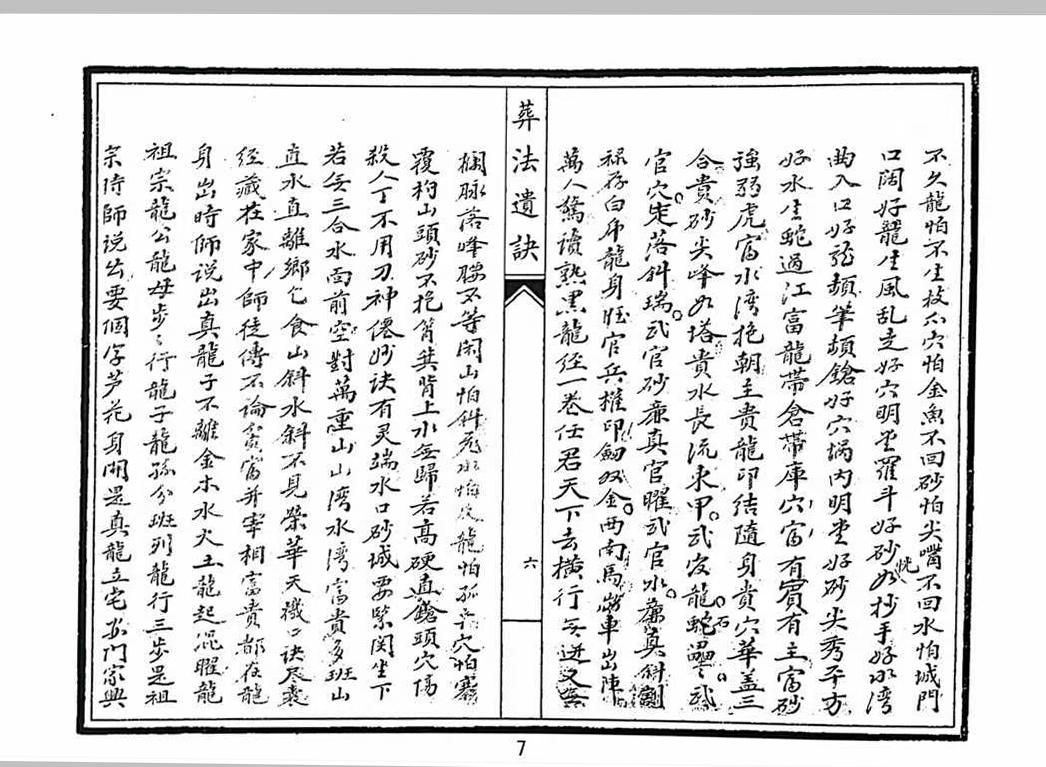 不久龍怕不生枝爪穴怕金魚不回砂怕尖嘴不回水怕城門
口闊好龍生風乱走好穴明堂羅斗好砂如抄手好水湾
曲入口好龍頡筆頡鎗好穴堝内明堂好砂尖秀平方
好水生蛇過江富龍帶倉帶庫穴富有賓有主富砂
強弱虎富水湾抱朝主貴龍印結隨身貴穴華盖三
合貴砂尖峰如塔貴水長流東甲武友龍蛇石
官穴走落斜瑞武官砂廉真官曜武官水廉真斜割
禄存白帝龍身官兵推印劒双金西南馬車出陣
萬人驚讀熟黑龍経一卷任君天下去横行
葬法遺訣
六
欄脉落峰腰不等閑山怕斜水怕龍怕孤穴怕寡
覆杓山頭砂不抱背上水無歸若高硬直鎗頭穴傷
殺人丁不用刀神僊妙訣有灵端水口砂城要緊関坐下
若無三合水面前空對萬重山山湾水湾富貴多班山
直水直離鄉乞食山斜水斜不見榮華天機口訣
経藏在家中師徒傳不論貧富并宰相富貴都在龍
身出時師説出真龍子不離金木水火土龍起混曜龍
祖宗龍公龍母步々行龍子龍孫分班列龍行三步是祖
宗時師説公要個字芦花身開是真龍立宅安门家興
7